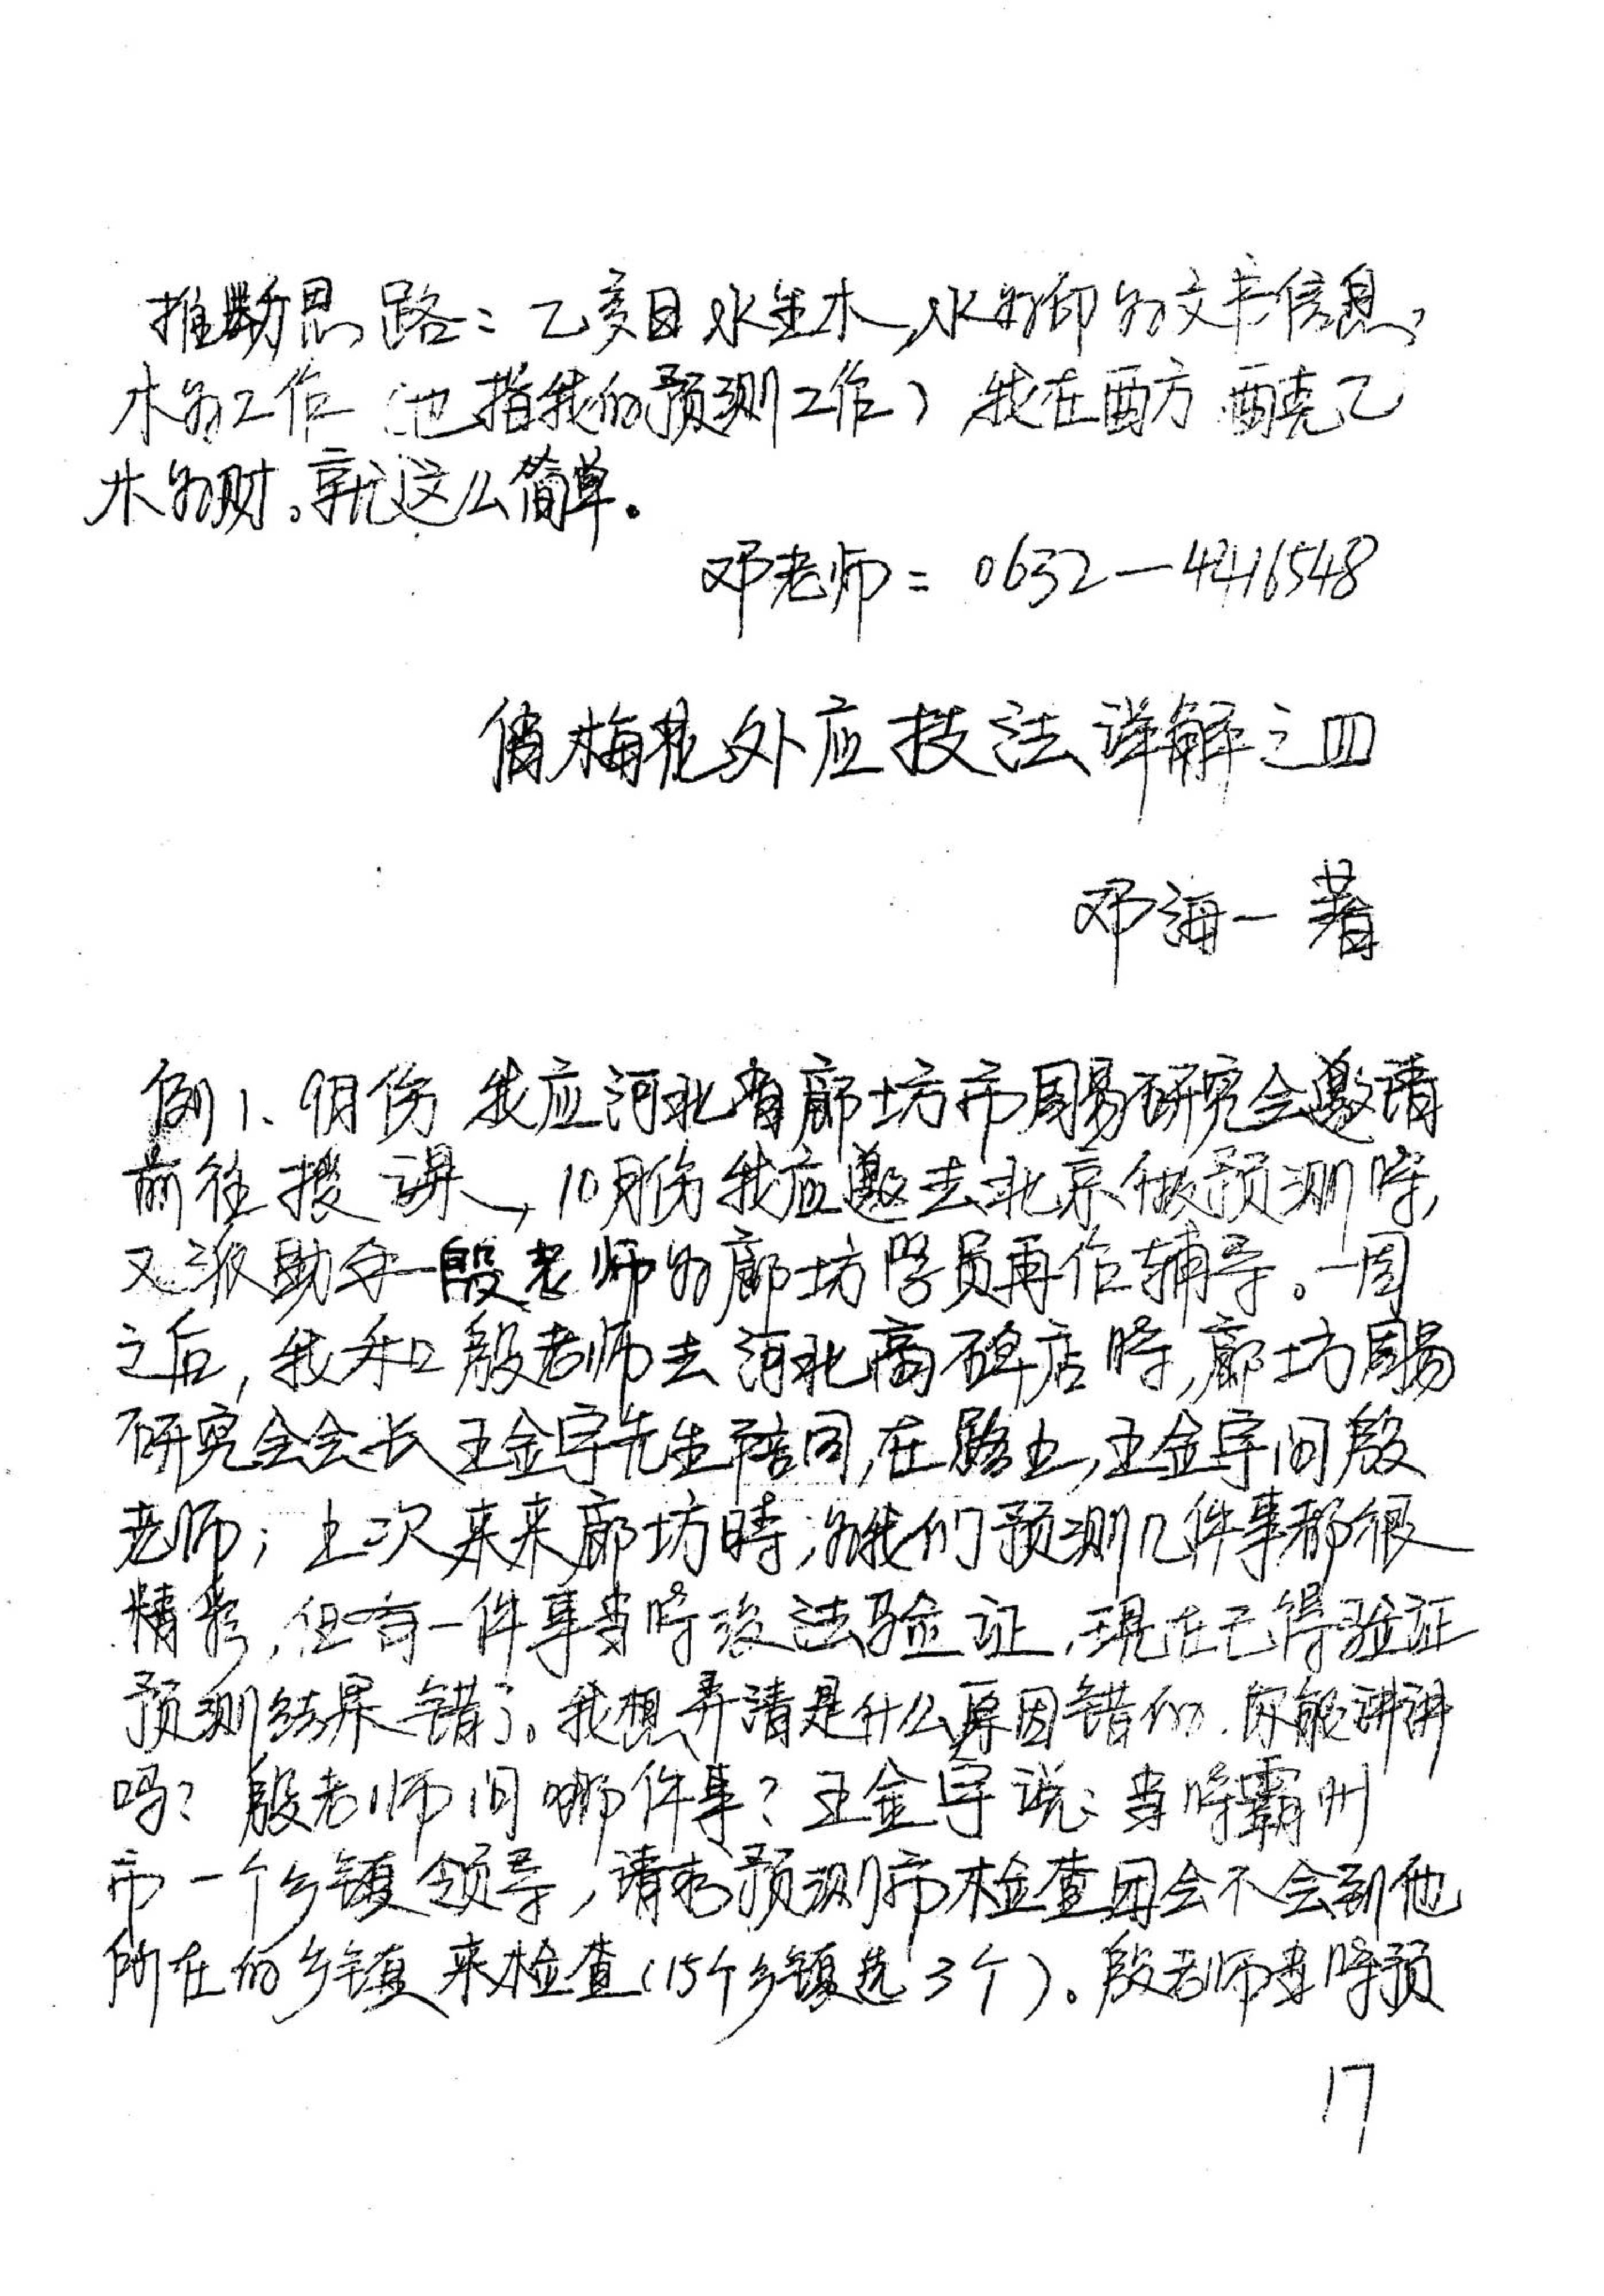 推断思路：乙亥日水生木，水为印为文书信息，
木为工作（也指我的预测工作）我在酉方 酉克乙
木为财。就这么简单。
邓老师：0632—4416548
俏梅花外应技法详解之四
邓海一 著
例1、9月份 我应河北省廊坊市周易研究会邀请
前往授课，10月份我应邀去北京做预测时，
又派助手殷老师为廊坊学员再作辅导。一周
之后，我和殷老师去河北高碑店时，廊坊周易
研究会会长王金宇先生陪同，在路上，王金宇问殷
老师；上次来来廊坊時，为我们预测几件事都很
精彩，但有一件事当时没法验证，现在已得验证
预测结果错了。我想弄清是什么原因错的．你能讲讲
吗？殷老师问哪件事？王金宇说：当时霸州
市一个乡镇领导，请求预测市检查团会不会到他
所在的乡镇来检查（15个乡镇选3个）。殷老师当时预
17